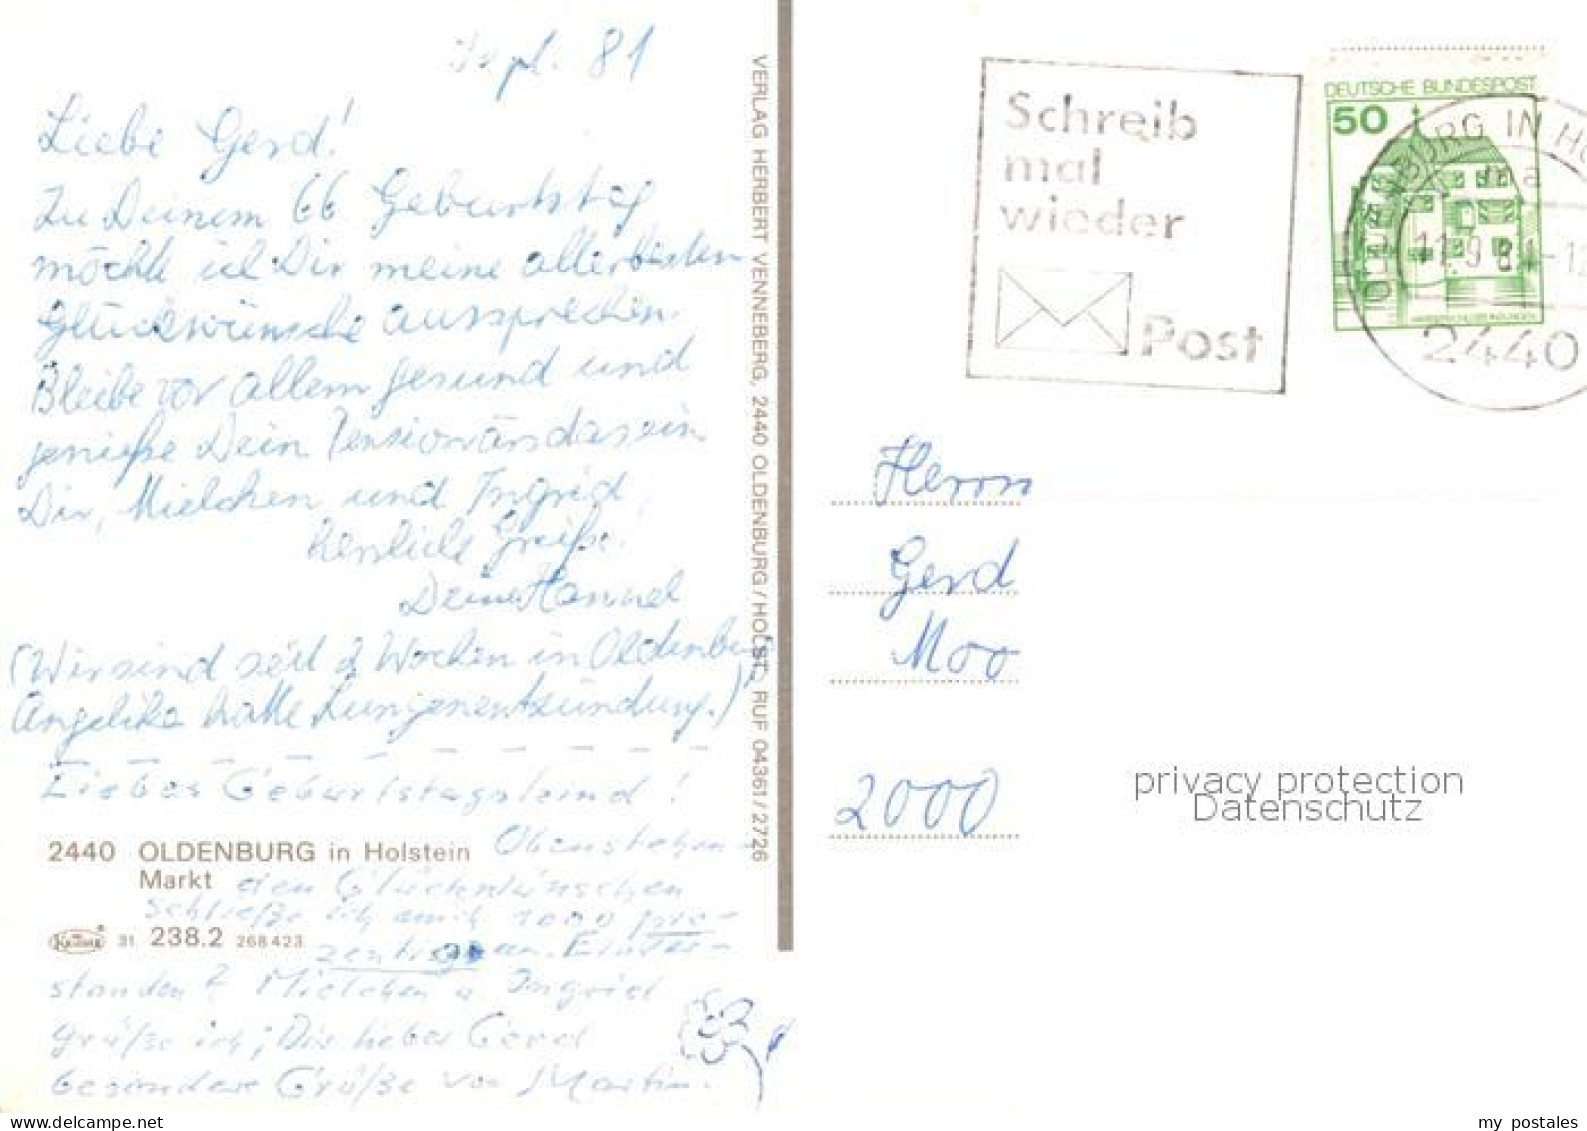 Sept. 81
Liebe Gerd!
Zu Deinem 66 Geburtstag
möchte ich Dir meine allerbesten
Glückwünsche aussprechen.
Bleibe vor allem gesund und
genieße Dein
Dir, Mielchen und Ingrid,
herzliche Grüße!
Deine Hannel
(Wir sind seit 2 Wochen in Oldenburg,
Angelika hatte Lungenentzündung.)
Liebes Geburtstagskind!
Obenstehen-
2440 OLDENBURG in Holstein
Markt
den Glückwünschen
schließe ich mich 1000 pro-
31 238.2 268 423
zentig an. Einver-
standen? Mielchen u. Ingrid
grüße ich; Dir lieber Gerd
besondere Grüße von Martin.
VERLAG HERBERT VENNEBERG, 2440 OLDENBURG/HOLST., RUF 04361/2726
Schreib
mal
wieder
Post
DEUTSCHE BUNDESPOST
50
OLDENBURG IN HO
ma
11.9.81-12
2440
Herrn
Gerd
Moo
2000
privacy protection
Datenschutz
my postales